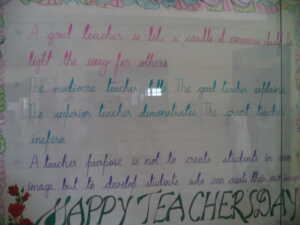 A good teacher is like a candle it consumes itself to
light the way for others
The mediocre teacher tells The good teacher explains
The superior teacher demonstrates The great teacher
inspires
A teacher purpose is not to create students in own
image but to develop students who can create their own image
HAPPY TEACHERSDAY